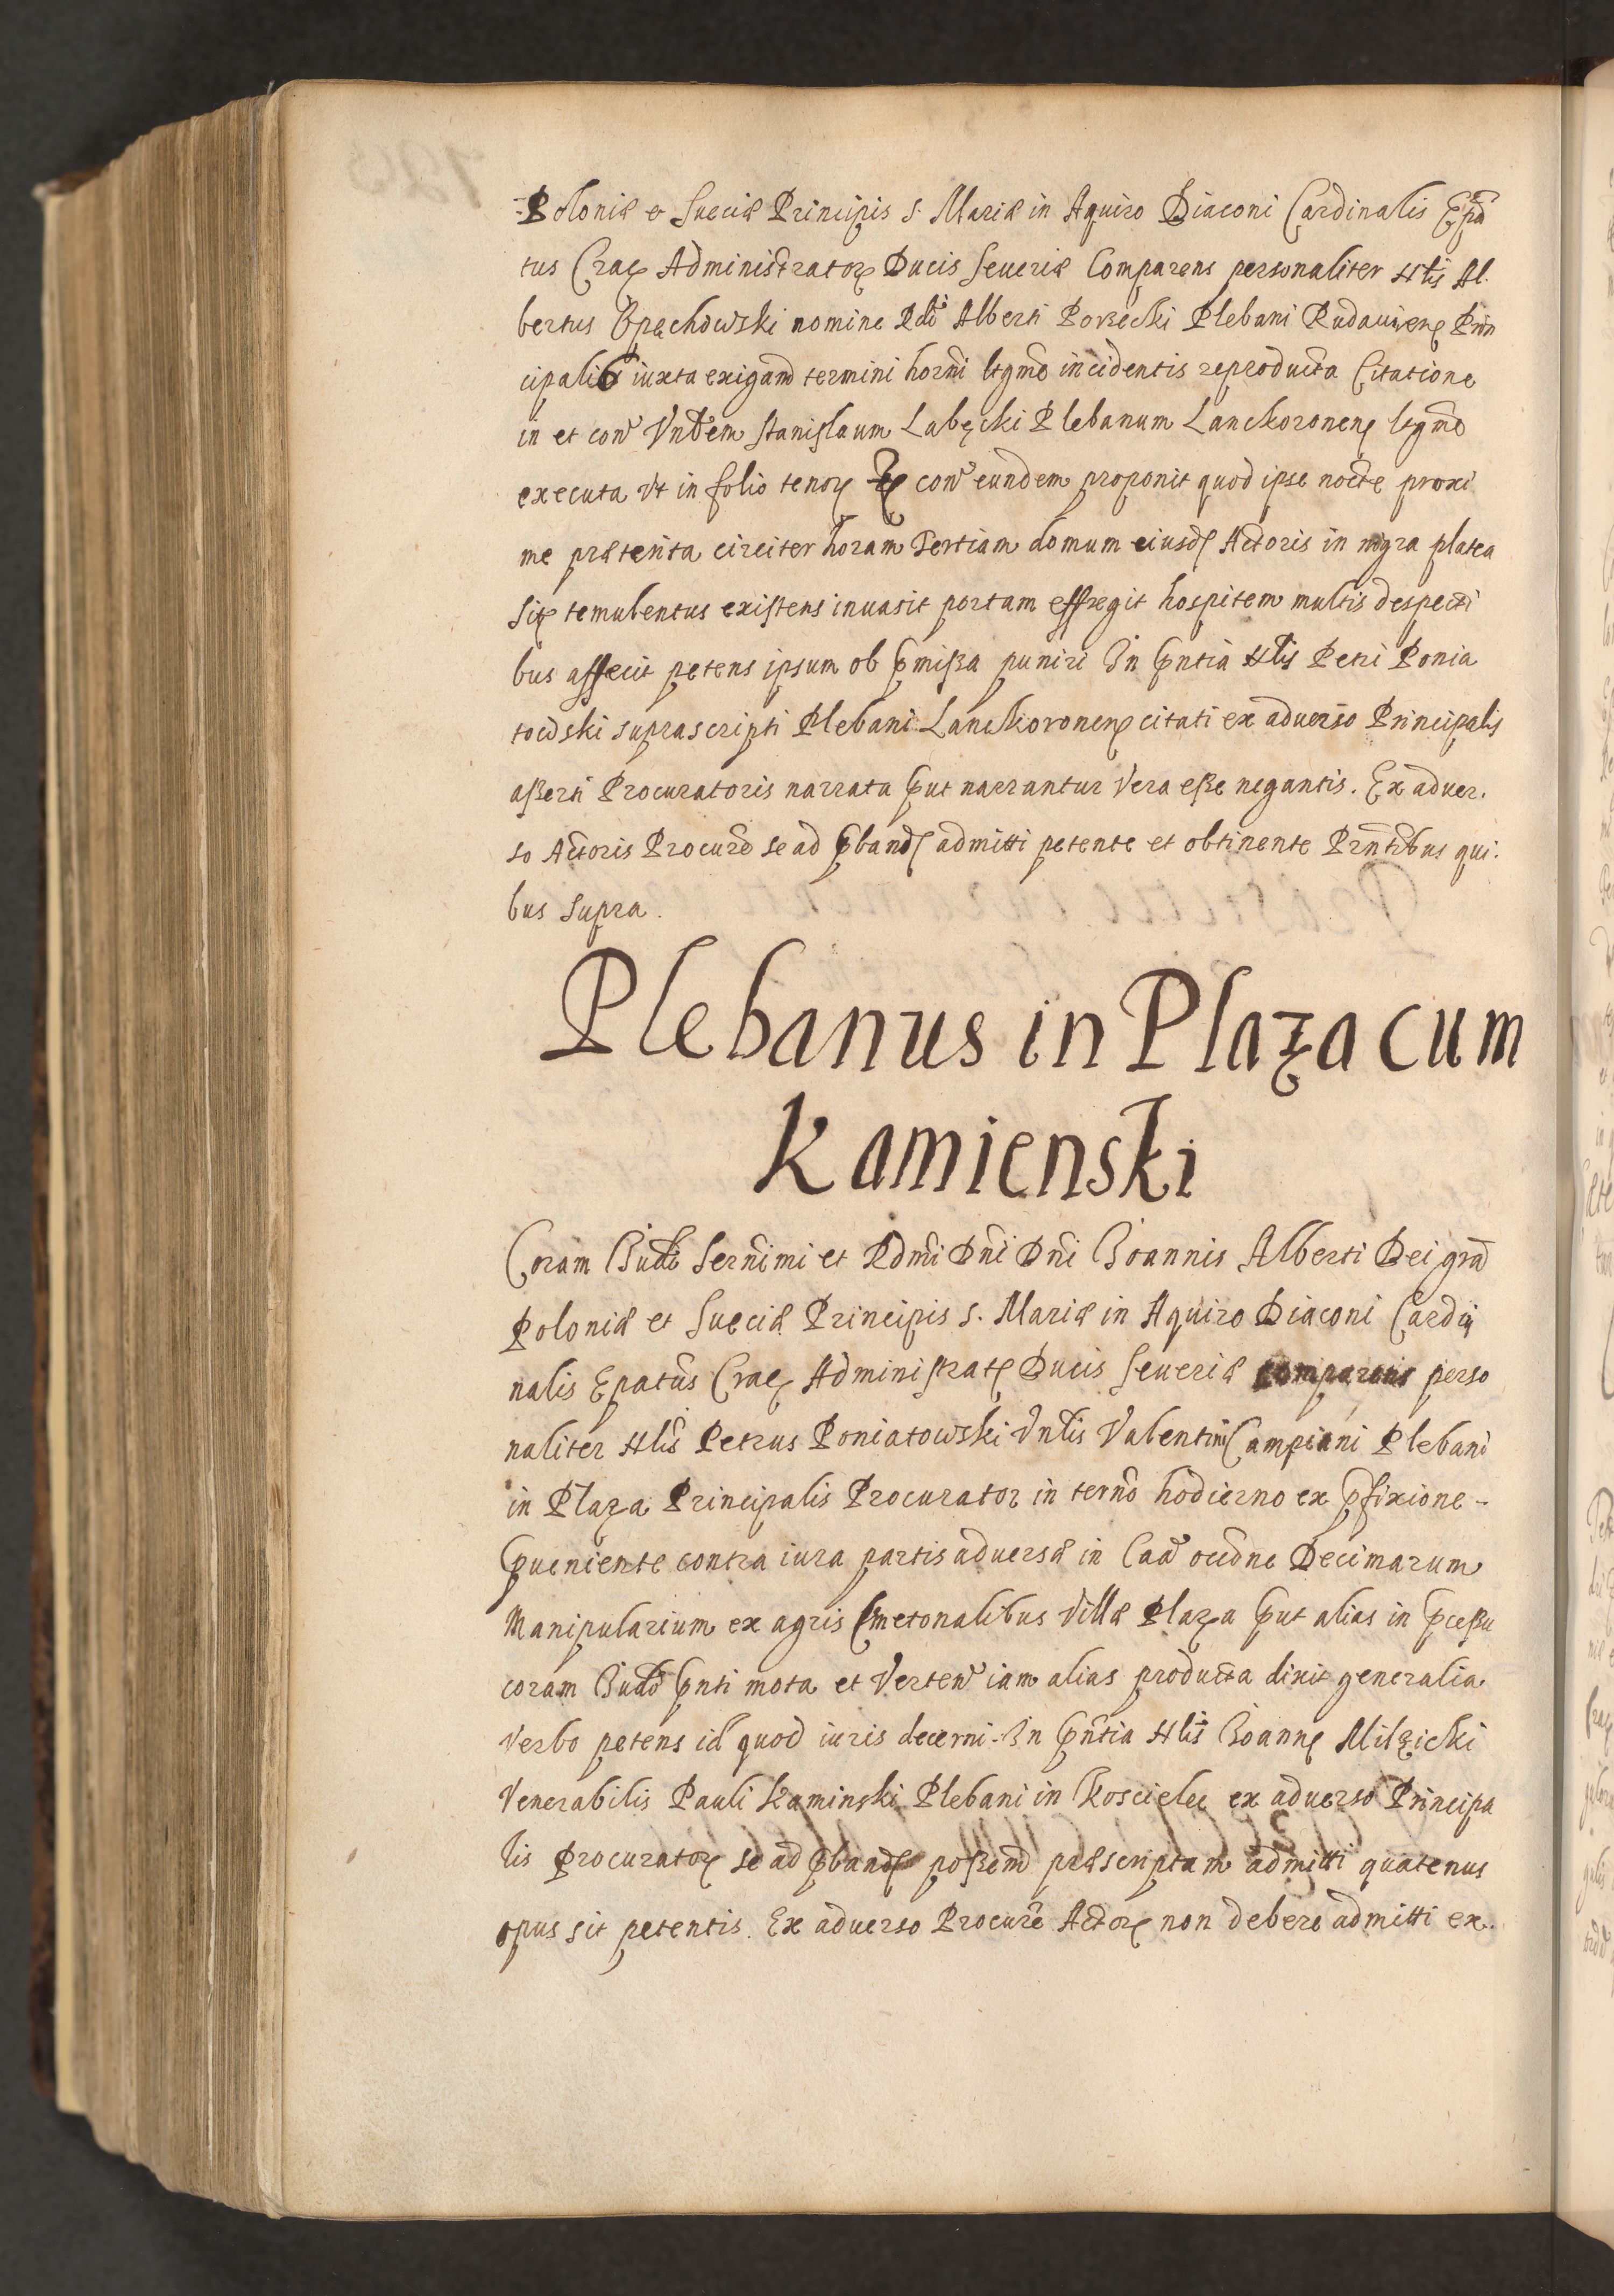 Poloniæ et Sueciæ Principis S. Mariæ in Aquiro Diaconi Cardinalis Epa
tus Crac Administrator Ducis Seueriæ Comparens personaliter Hlis Al.
bertus Opęchowski nomine Rdi Alberti Porzecki Plebani Rudauien Prin
cipalis iuxta exigand termini horni ltgme incidentis reproducta Citatione
in et con Vnblem Stanislaum Labęcki Plebanum Lanckoronen ltgme
executa vt in folio tenor con eundem proponit quod ipse nocte proxi
me præterita circiter horam Tertiam domum eiusd Actoris in nigra platea
sit temulentus existens inuasit portam effregit hospitem multis despecti
bus affecit petens ipsum ob pmißa puniri In pntia Hlis Petri Ponia
towski suprascripti Plebani Lanckoronen citati ex aduerso Principalis
aßerti Procuratoris narrata put narrantur vera eße negantis. Ex aduer.
so Actoris Procure se ad pband admitti petente et obtinente Prntibus qui.
bus supra.
Plebanus in Plaza cum
Kamienski
Coram Iudi Sernimi et Rdmi Dni Dni Ioannis Alberti Dei gra
Poloniæ et Sueciæ Principis S. Mariæ in Aquiro Diaconi Cardi
nalis Epatus Crac Administrat Ducis Seueriæ comparens perso
naliter Hlis Petrus Poniatowski Vnblis Valentini Campiani Plebani
in Plaza Principalis Procurator in terno hodierno ex pfixione -
pueniente contra iura partis aduersæ in Caa occne Decimarum
Manipularium ex agris Cmetonalibus Villæ Plaza put alias in pceßu
coram Iudo pnti mota et Verten iam alias producta dixit generalia
verbo petens id quod iuris decerni. In pntia Hlis Ioann Milzicki
Venerabilis Pauli Kaminski Plebani in Koscielec ex aduerso Principa
lis Procurator se ad pband poßem præscriptam admitti quatenus
opus sit petentis. Ex aduerso Procure Actor non debere admitti ex.